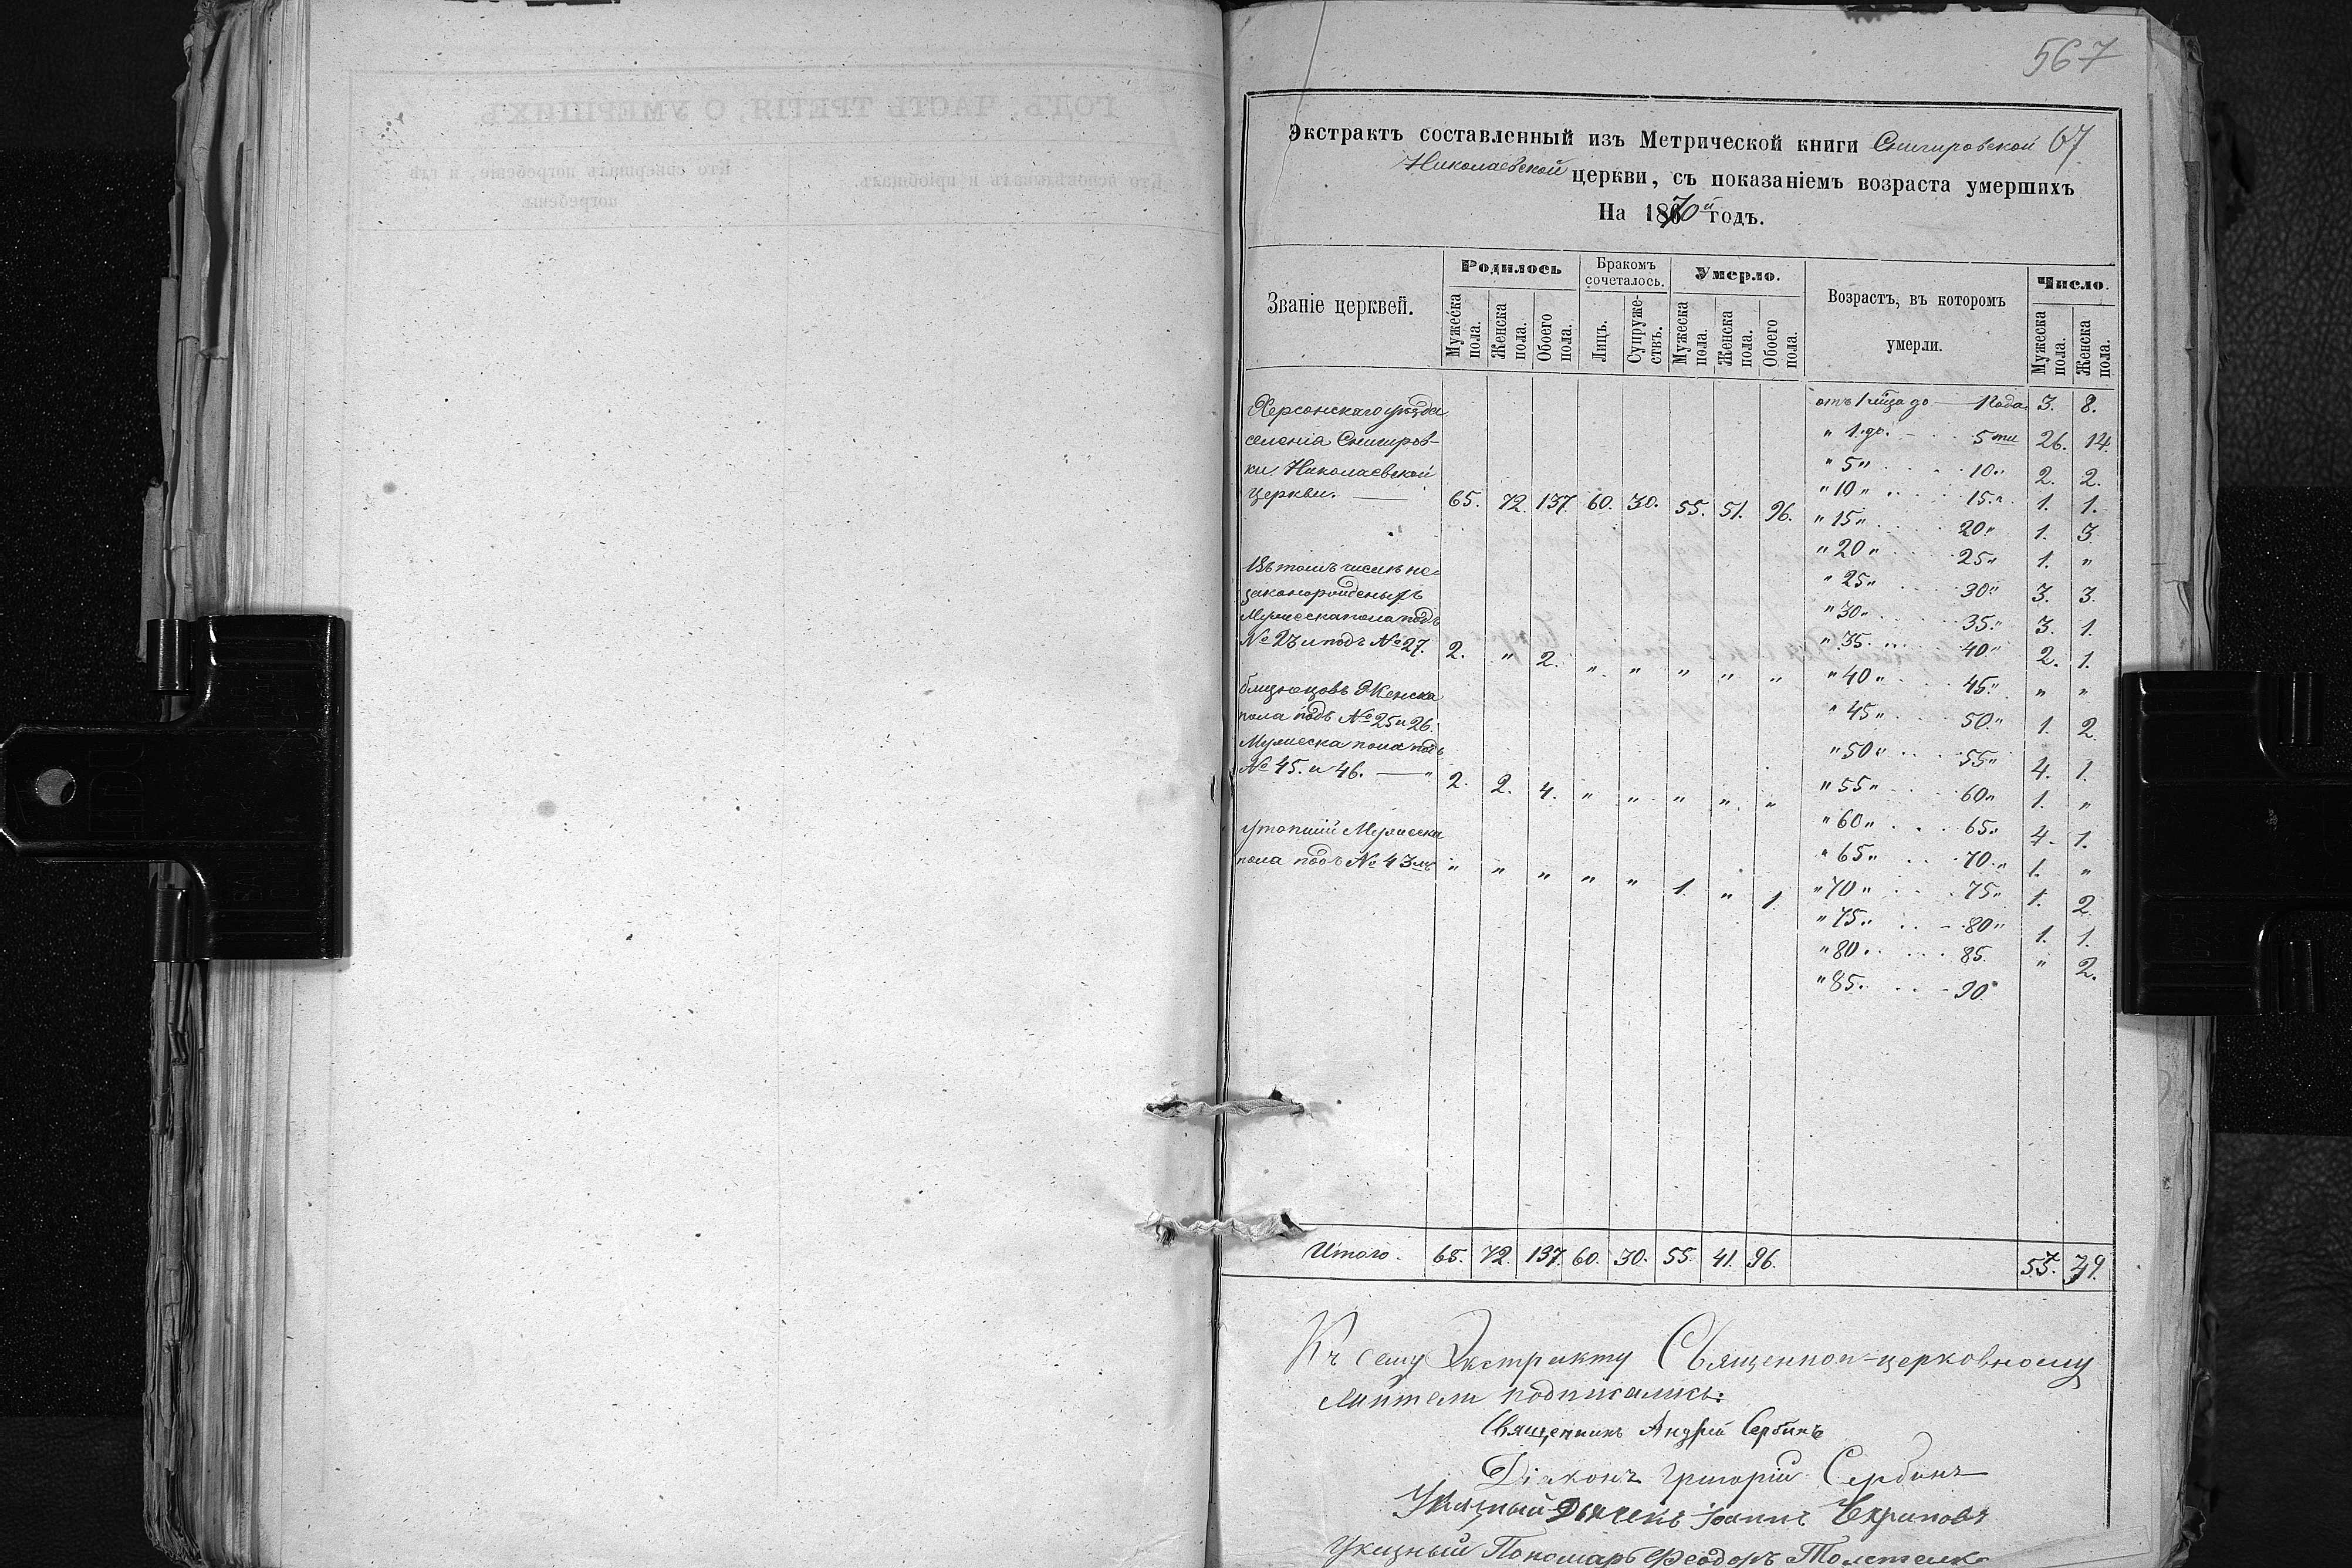 567
Экстрактъ составленный изъ Метрической книги Снигировской 67
Николаевской церкви, съ показаніемъ возраста умершихъ
На 1870й годъ.
Званіе церквей.
Родилось
Бракомъ сочеталось.
Умерло.
Возрастъ, въ которомъ умерли.
Число.
Мужеска пола.
Женска пола.
Обоего пола.
Лицъ.
Супруже-ствъ.
Мужеска пола.
Женска пола.
Обоего пола.
Мужеска пола.
Женска пола.
Херсонскаго уѣзда
селенія Снигиров-
ки Николаевской
церкви. — 65. 72. 137. 60. 30. 55. 51. 96.
Въ томъ числѣ не-
законорожденныхъ
Мужеска пола подъ
№ 23 и подъ № 27. 2. " 2. " " " " "
близнецовъ Женска
пола подъ № 25 и 26.
Мужеска пола подъ
№ 45. и 46. — " 2. 2. 4. " " " " "
утопшій Мужеска
пола подъ № 43мъ " " " " " 1. " 1.
отъ 1 мѣца до — 1 года 3. 8.
" 1. до. 5ти 26. 14.
" 5 " 10 " 2. 2.
" 10 " 15 " 1. 1.
" 15 " 20 " 1. 3
" 20 " 25 " 1. "
" 25 " 30 " 3. 3.
" 30 " 35 " 3. 1.
" 35 " 40 " 2. 1.
" 40 " 45 " " "
" 45 " 50 " 1. 2.
" 50 " 55 " 4. 1.
" 55 " 60 " 1. "
" 60 " 65 " 4. 1.
" 65 " 70 " 1. "
" 70 " 75 " 1. 2
" 75 " 80 " 1. 1.
" 80 " 85. " 2.
" 85. 90
Итого. 65. 72. 137. 60. 30. 55. 41. 96. 55.
Къ сему Экстракту Священно-церковно
служители подписались:
Священникъ Андрей Сербинъ
Діаконъ Григорій Сербинъ
Указный Дьячекъ Іоаннъ
Указный Пономарь Феодоръ